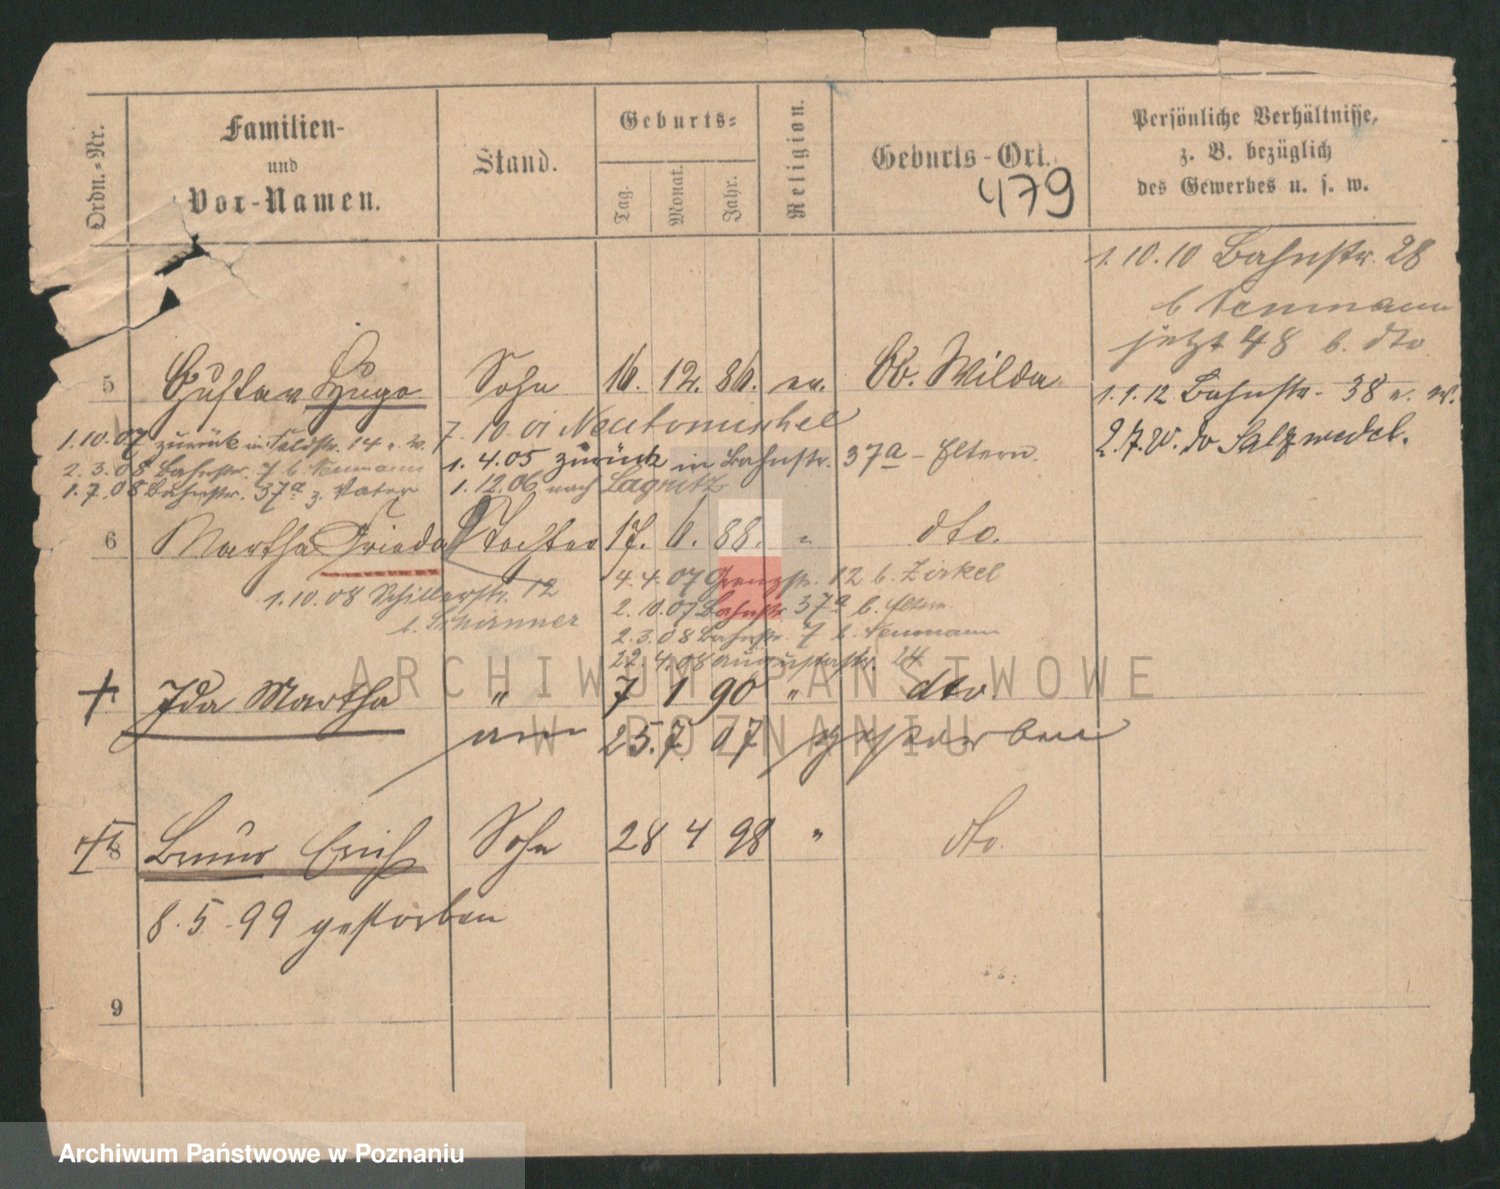 Ordn.-Nr.
Familien-
und
Vor-Namen.
Stand.
Geburts-
Tag.
Monat.
Jahr.
Religion.
Geburts-Ort.
479
Persönliche Verhältnisse,
z. B. bezüglich
des Gewerbes u. s. w.
1.10.10 Bahnstr. 28
b Neumann
jetzt 48 b. dto
5 Gustav Hugo Sohn 16. 12. 86. ev. Ob. Wilda
1.1.12 Bahnstr. 38 n. w.
7. 10 01 Neutomischel
1.10.07 zurück in Feldstr. 14 n. w.
1.4.05 zurück in Bahnstr. 37a - Eltern
2.3.08 Bahnstr. 7 b. Neumann
1.7.08 Bahnstr. 37a z. Vater
1.12.06 nach
Salzwedel.
6 Martha Frieda Tochter 17. 6. 88. " dto.
4.4.07 Grenzstr. 12 b. Zirkel
1.10.08 Schillerstr. 12
2.10.07 Bahnstr 37a b. Eltern
b. Schirmer
2.3.08 Bahnstr. 7 b. Neumann
22.4.08 Augustastr. 24
ARCHIWUM PAŃSTWOWE
Ida Martha " 7 1 90 " dto.
W POZNANIU
am 25.7. 07 gestorben
8 Bruno Erich Sohn 28 4 98 " dto.
8.5.99 gestorben
9
Archiwum Państwowe w Poznaniu